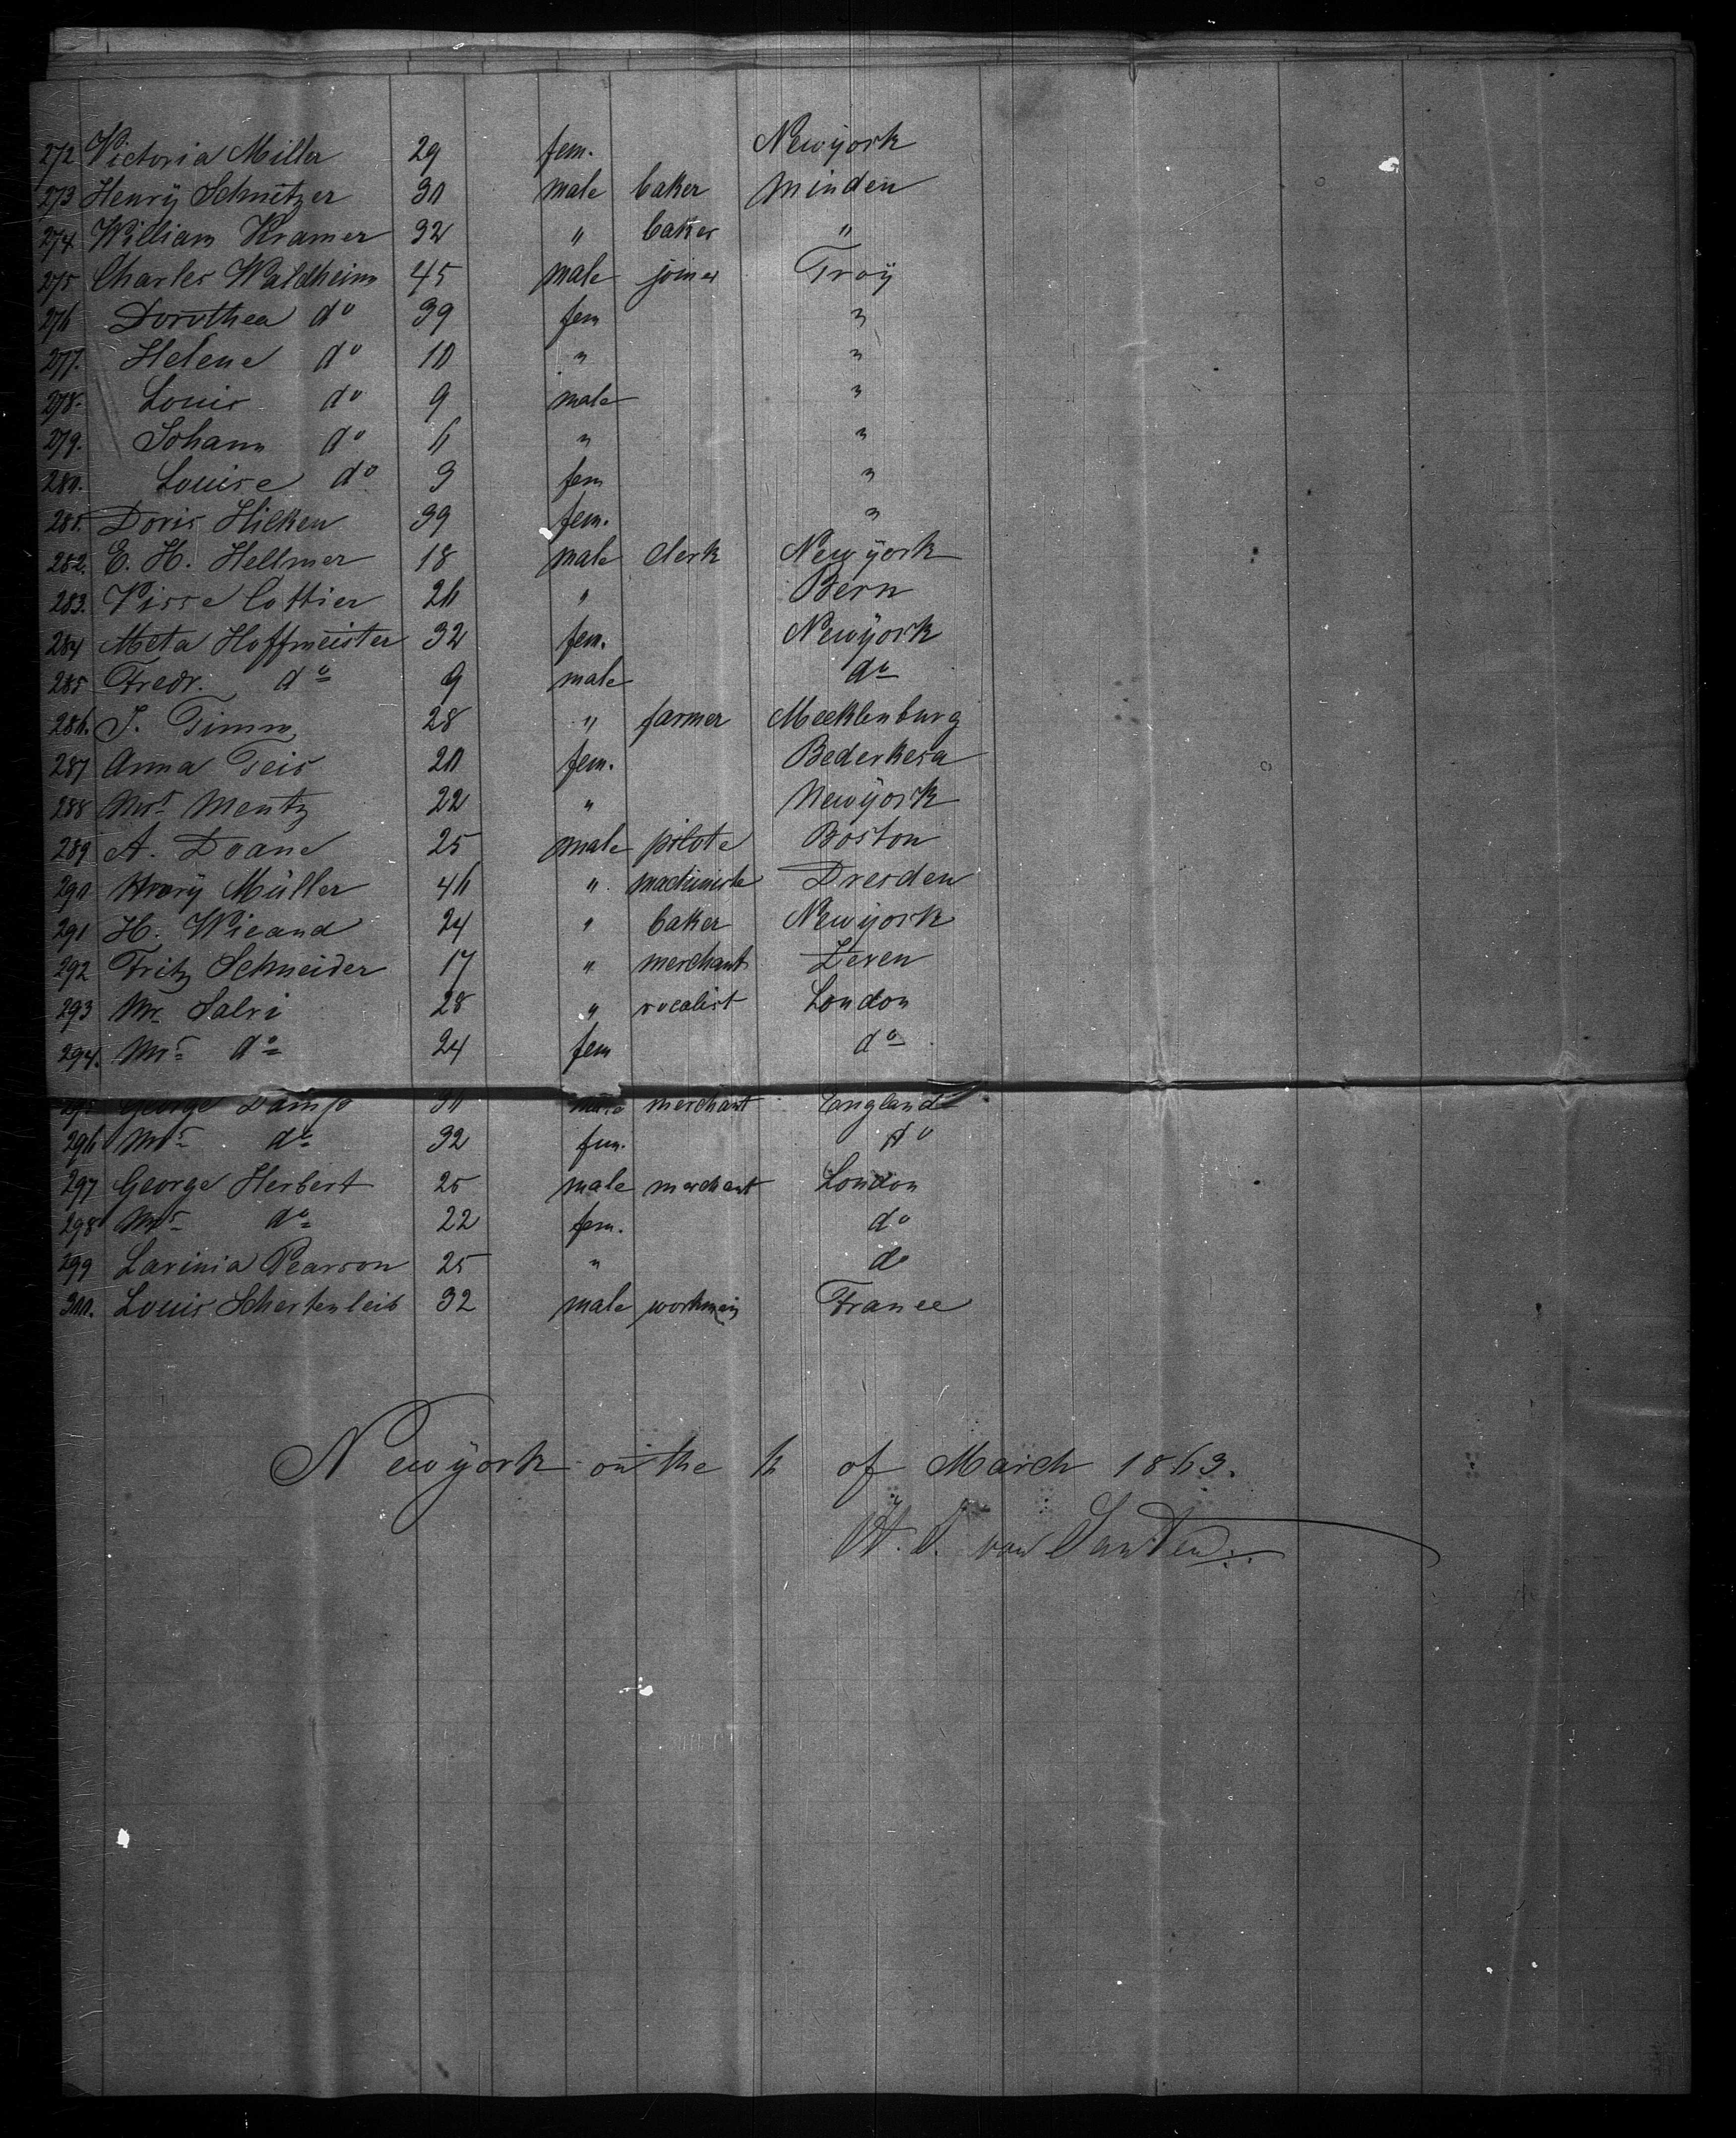 272 Victoria Miller 29 fem. Newyork
273 Henry Schnitzer 30 male baker Minden
274 William Kramer 32 " baker "
275 Charles Waldheim 45 male joiner Troy
276 Dorothea do 39 fem "
277. Helene do 10 " "
278. Louis do 9 male "
279. Johann do 6 " "
280. Louise do 3 fem "
281. Doris Hilken 39 fem. "
282. E. H. Hellmer 18 male clerk Newyork
283. Cottier 26 " Bern
284 Meta Hoffmeister 32 fem. Newyork
285 Fredr. do 9 male do
286. J. Timm 28 " farmer Mecklenburg
287 Anna Teis 20 fem. Bederkesa
288 Mrs Mentz 22 " Newyork
289 A. Doane 25 male pilote Boston
290 Müller 46 " machiniste Dresden
291 H. Wieand 24 " baker Newyork
292 Fritz Schneider 17 " merchant Zeven
293 Mr Salvi 28 " vocalist London
294. Mrs do 24 fem do
295 George 30 male merchant England
296 Mrs do 32 fem. do
297 George Herbert 25 male merchant London
298 Mrs do 22 fem. do
299 Lavinia Pearson 25 " do
300. Louis Schertenleib 32 male workman France
Newyork on the 6 of March 1863.
H. J. von Santen